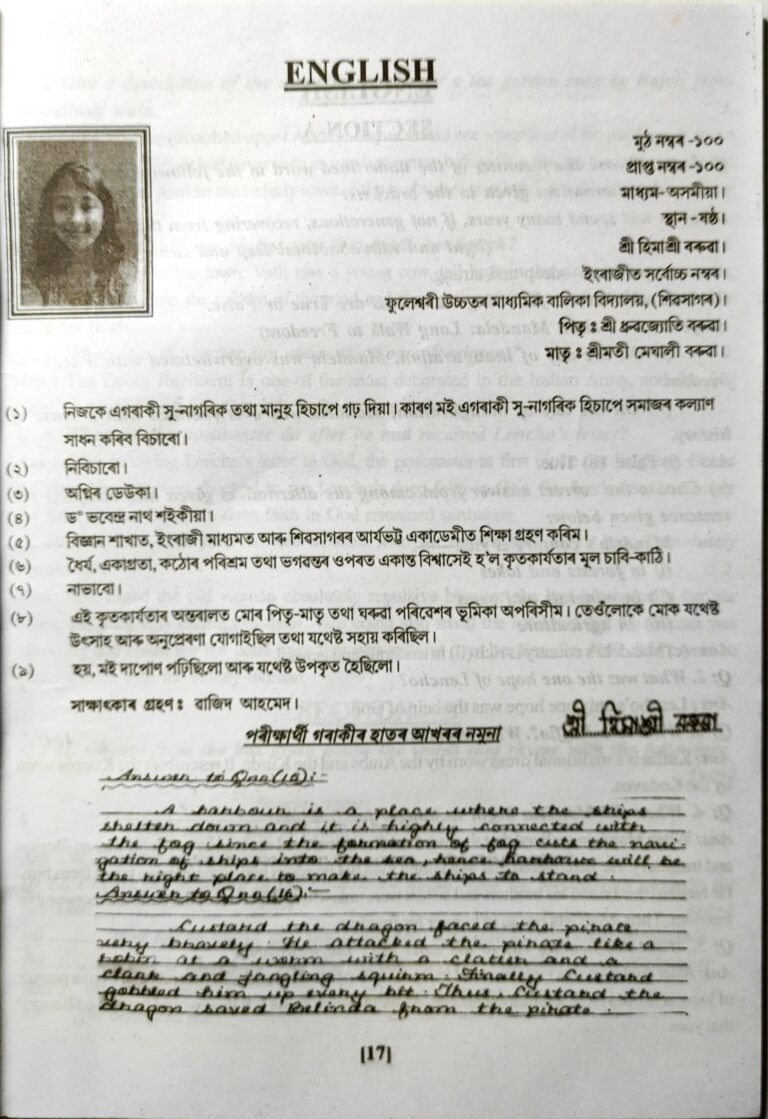 ENGLISH
মুঠ নম্বৰ -১০০
প্ৰাপ্ত নম্বৰ -১০০
মাধ্যম- অসমীয়া।
স্থান - ষষ্ঠ।
শ্ৰী হিমাশ্ৰী বৰুৱা।
ইংৰাজীত সৰ্বোচ্চ নম্বৰ।
ফুলেশ্বৰী উচ্চতৰ মাধ্যমিক বালিকা বিদ্যালয়, (শিৱসাগৰ)।
পিতৃ ঃ শ্ৰী ধ্ৰুৱজ্যোতি বৰুৱা।
মাতৃ ঃ শ্ৰীমতী মেঘালী বৰুৱা।
(১) নিজকে এগৰাকী সু-নাগৰিক তথা মানুহ হিচাপে গঢ় দিয়া। কাৰণ মই এগৰাকী সু-নাগৰিক হিচাপে সমাজৰ কল্যাণ
সাধন কৰিব বিচাৰো।
(২) নিবিচাৰো।
(৩) অগ্নিৰ ডেউকা।
(৪) ড° ভবেন্দ্ৰ নাথ শইকীয়া।
(৫) বিজ্ঞান শাখাত, ইংৰাজী মাধ্যমত আৰু শিৱসাগৰৰ আৰ্যভট্ট একাডেমীত শিক্ষা গ্ৰহণ কৰিম।
(৬) ধৈৰ্য, একাগ্ৰতা, কঠোৰ পৰিশ্ৰম তথা ভগৱন্তৰ ওপৰত একান্ত বিশ্বাসেই হ'ল কৃতকাৰ্যতাৰ মূল চাবি-কাঠি।
(৭) নাভাবো।
(৮) এই কৃতকাৰ্যতাৰ অন্তৰালত মোৰ পিতৃ-মাতৃ তথা ঘৰুৱা পৰিৱেশৰ ভূমিকা অপৰিসীম। তেওঁলোকে মোক যথেষ্ট
উৎসাহ আৰু অনুপ্ৰেৰণা যোগাইছিল তথা যথেষ্ট সহায় কৰিছিল।
(৯) হয়, মই দাপোণ পঢ়িছিলো আৰু যথেষ্ট উপকৃত হৈছিলো।
সাক্ষাৎকাৰ গ্ৰহণ ঃ ৱাজিদ আহমেদ।
শ্ৰী হিমাশ্ৰী বৰুৱা
পৰীক্ষাৰ্থী গৰাকীৰ হাতৰ আখৰৰ নমুনা
Answer to Q no (15) :-
A harbour is a place where the ships
shelter down and it is highly connected with
the fog since the formation of fog cuts the navi-
gation of ships into the sea, hence harbour will be
the right place to make the ships to stand.
Answer to Q no (16) :-
Custard the dragon faced the pirate
very bravely. He attacked the pirate like a
robin at a worm with a clatter and a
clank and jangling squirm. Finally Custard
gobbled him up every bit. Thus, Custard the
dragon saved Belinda from the pirate.
[17]